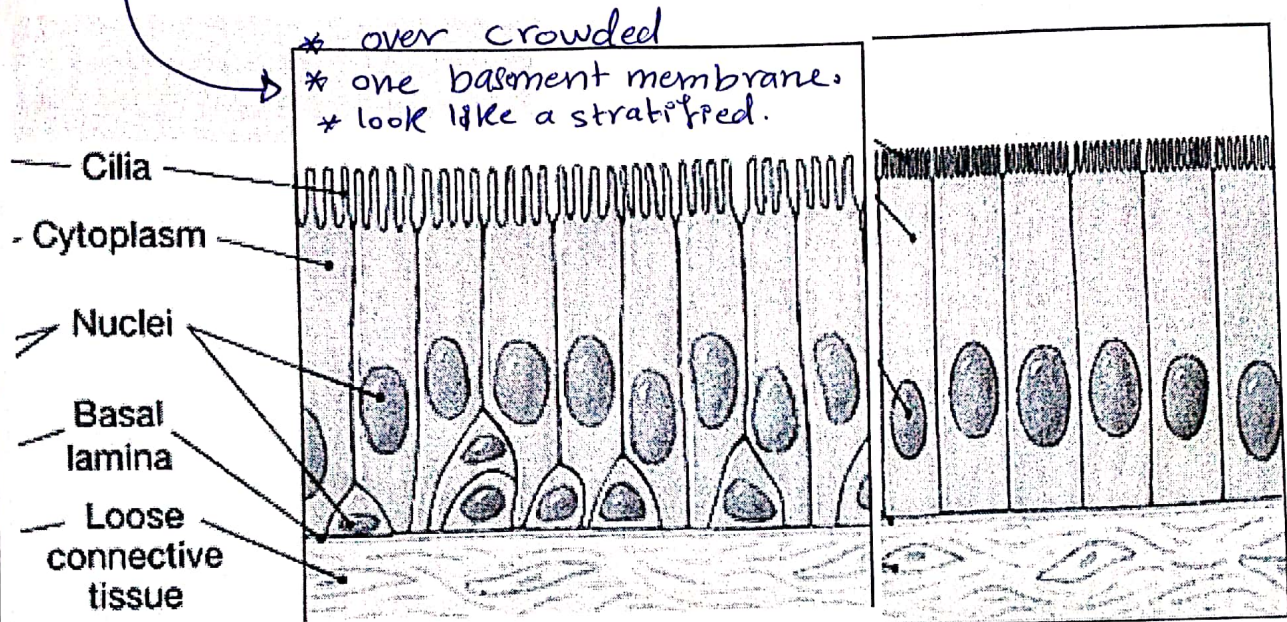 * over crowded
* one basement membrane.
* look like a stratified.
Cilia
Cytoplasm
Nuclei
Basal
lamina
Loose
connective
tissue